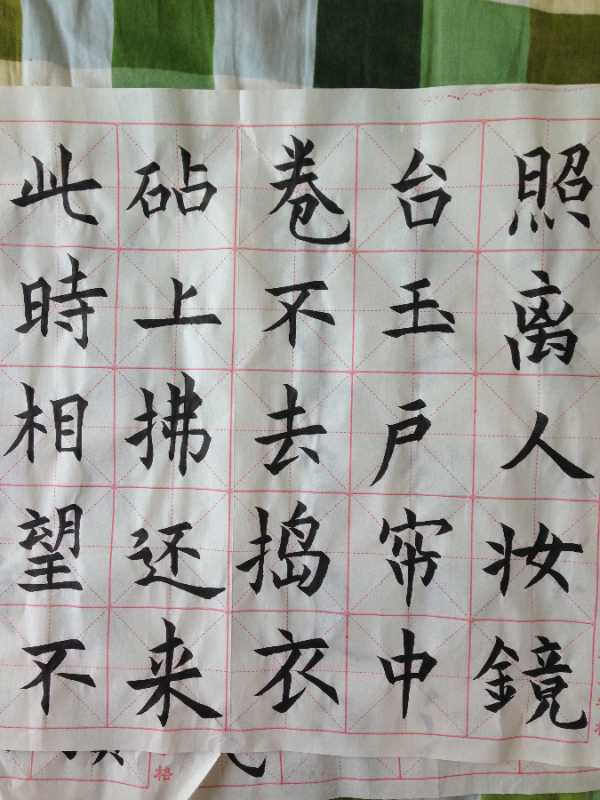 照离人妆鏡
台玉户帘中
卷不去捣衣
砧上拂还来
此時相望不
格